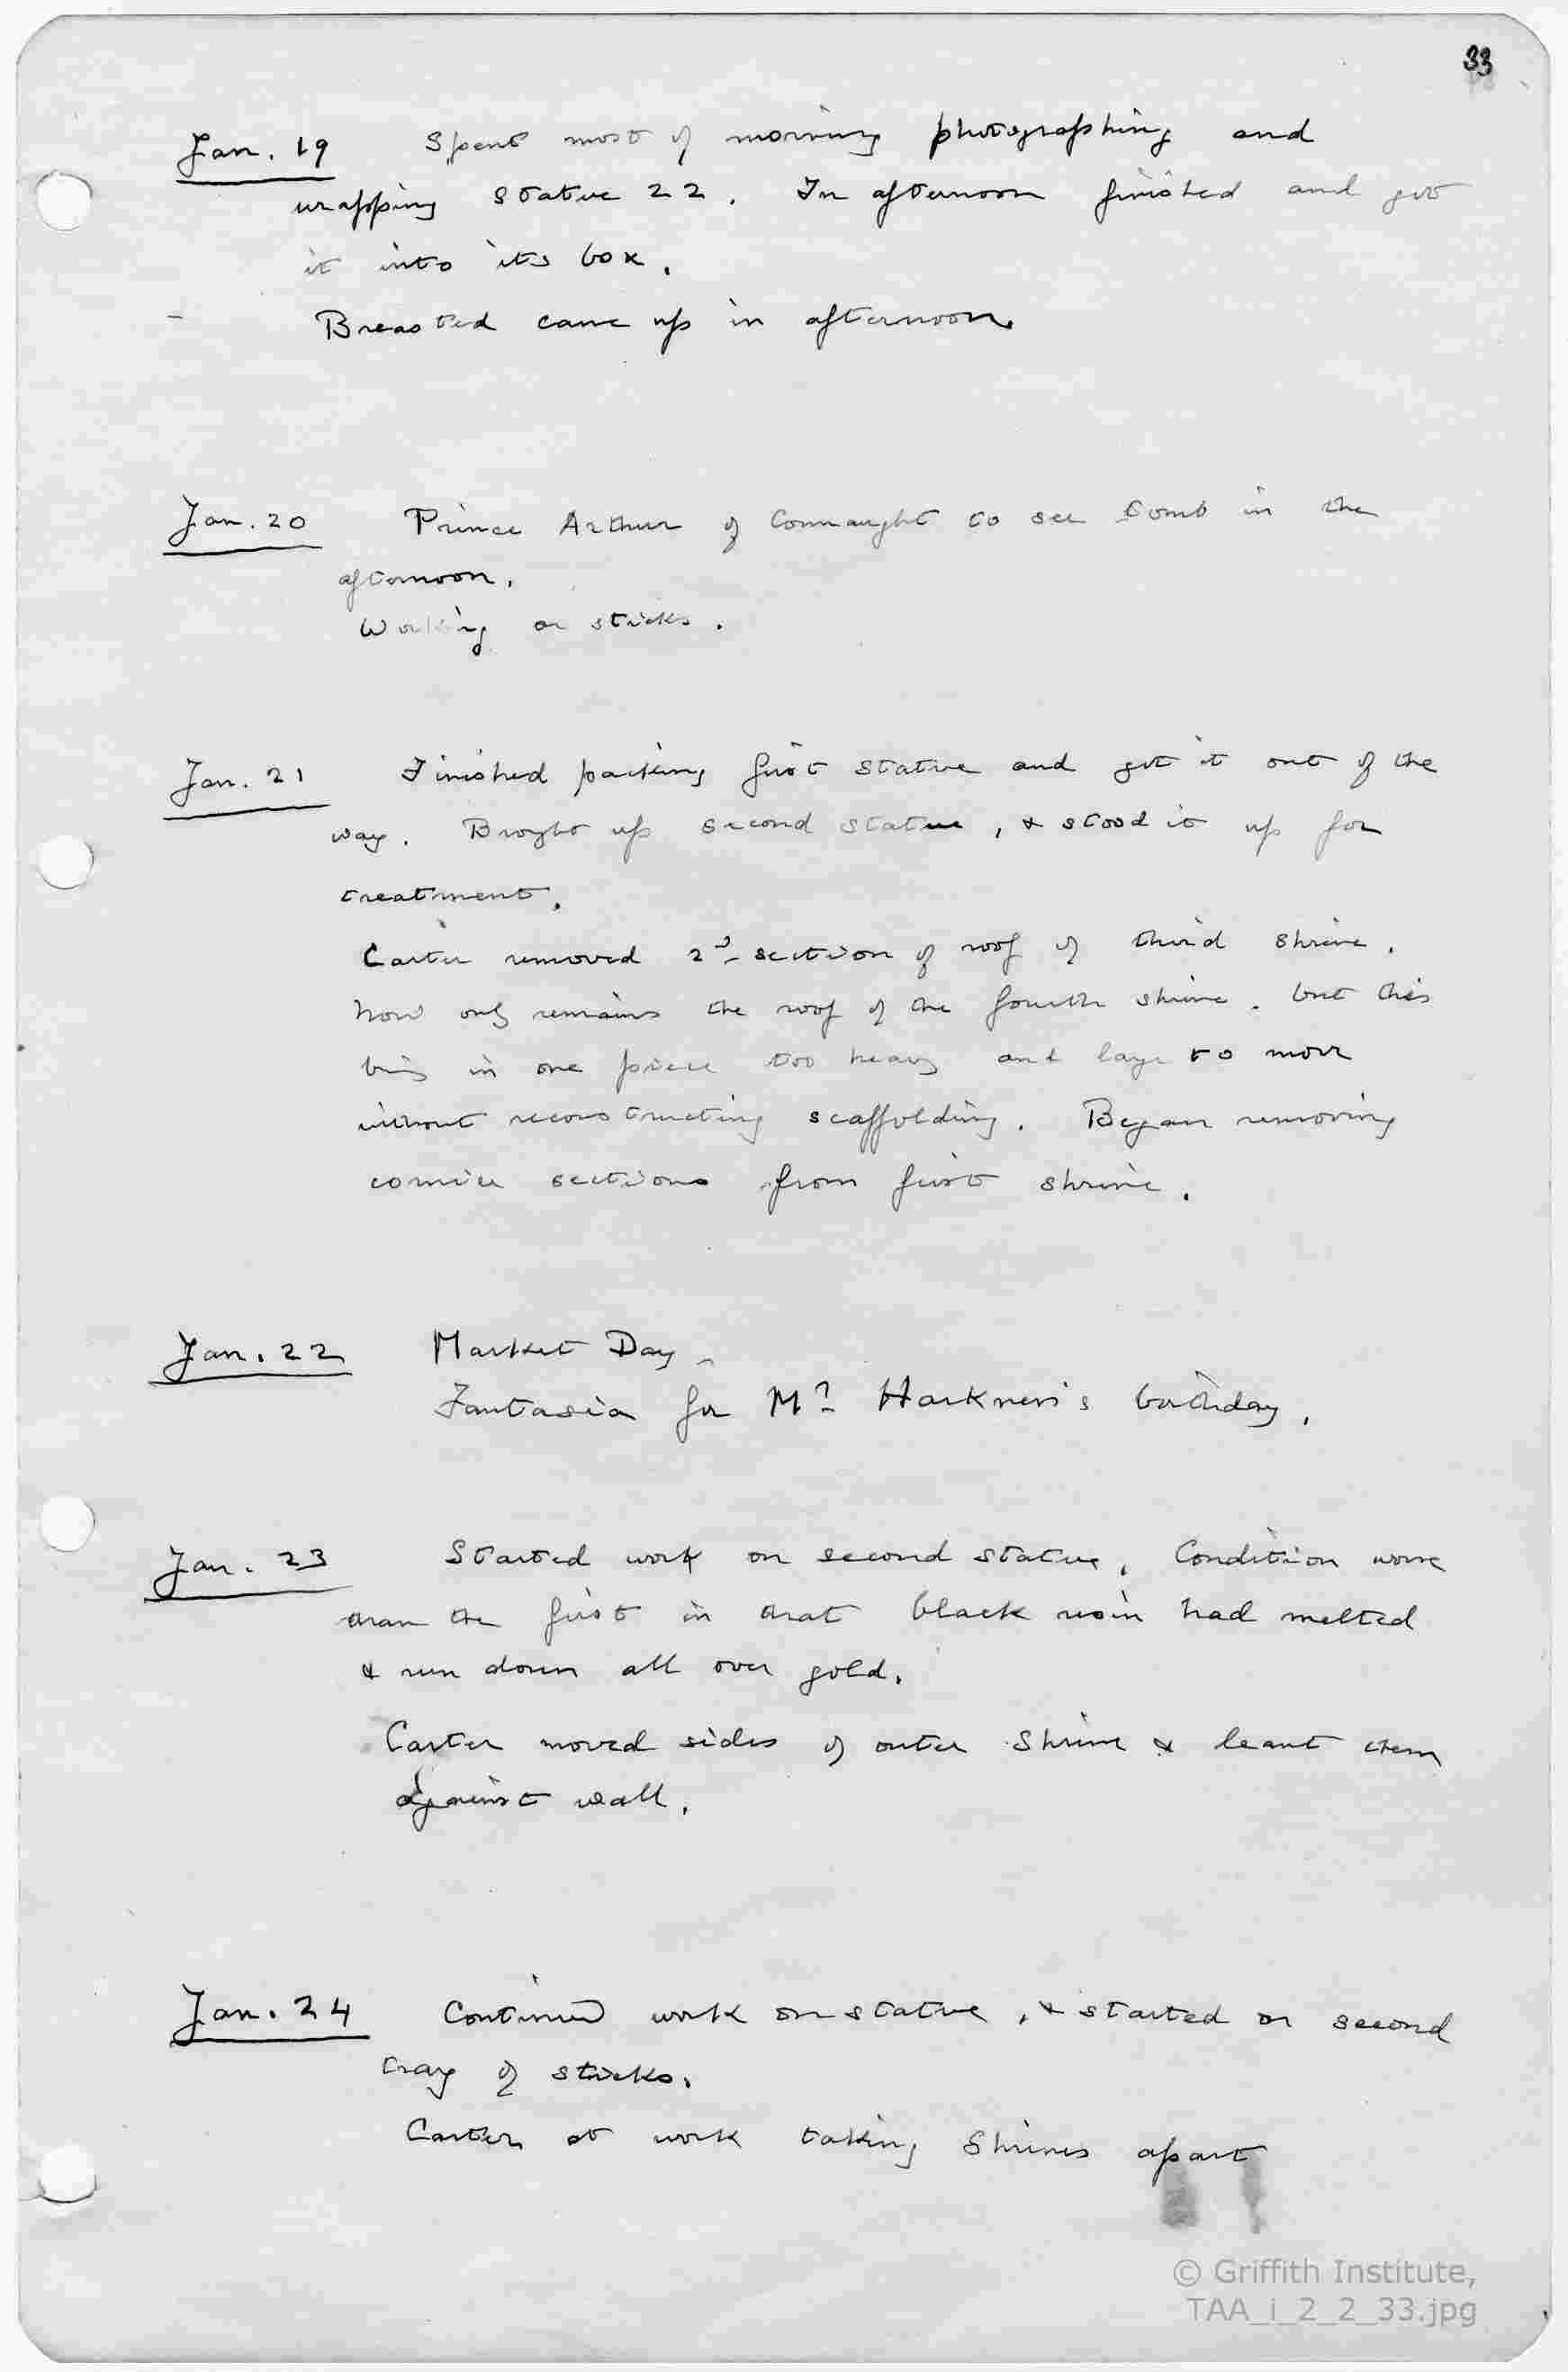 33
Jan. 19 Spent most of morning photographing and
wrapping statue 22. In afternoon finished and got
it into its box.
Breasted came up in afternoon.
Jan. 20 Prince Arthur of Connaught to see tomb in the
afternoon.
Working on sticks.
Jan. 21 Finished packing first statue and got it out of the
way. Brought up second statue, & stood it up for
treatment.
Carter removed 2nd section of roof of third shrine.
Now only remains the roof of the fourth shrine. but this
being in one piece too heavy and large to move
without reconstructing scaffolding. Began removing
cornice sections from first shrine.
Jan. 22 Market Day -
Fantasia for Mr. Harkness's birthday.
Jan. 23 Started work on second statue. Condition worse
than the first in that black resin had melted
& run down all over gold.
Carter moved sides of outer shrine & leant them
against wall.
Jan. 24 Continued work on statue, & started on second
tray of sticks.
Carter at work taking shrines apart
© Griffith Institute,
TAA_i_2_2_33.jpg